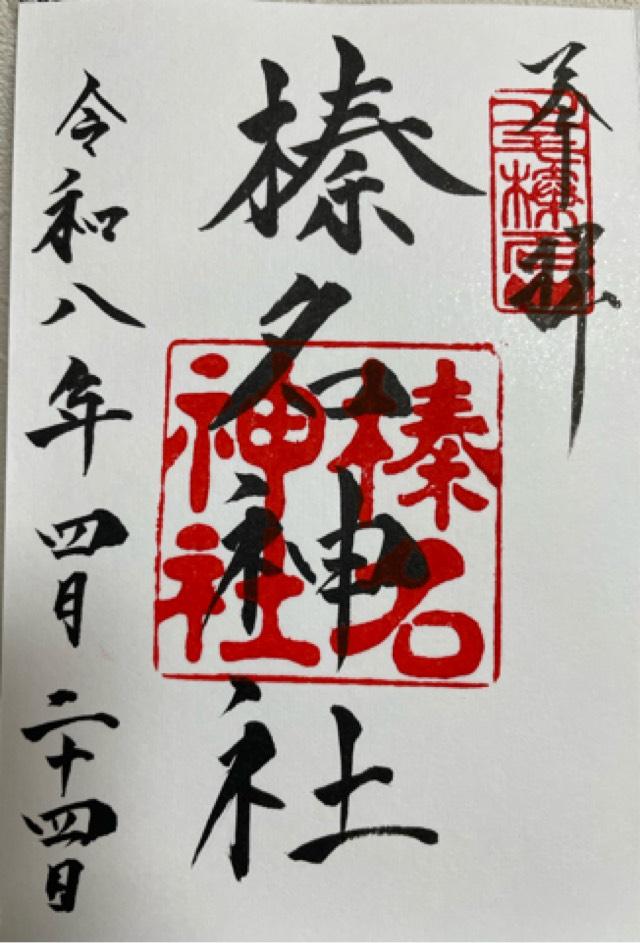 奉拝
榛名神社
榛名
神社
令和八年四月二十四日